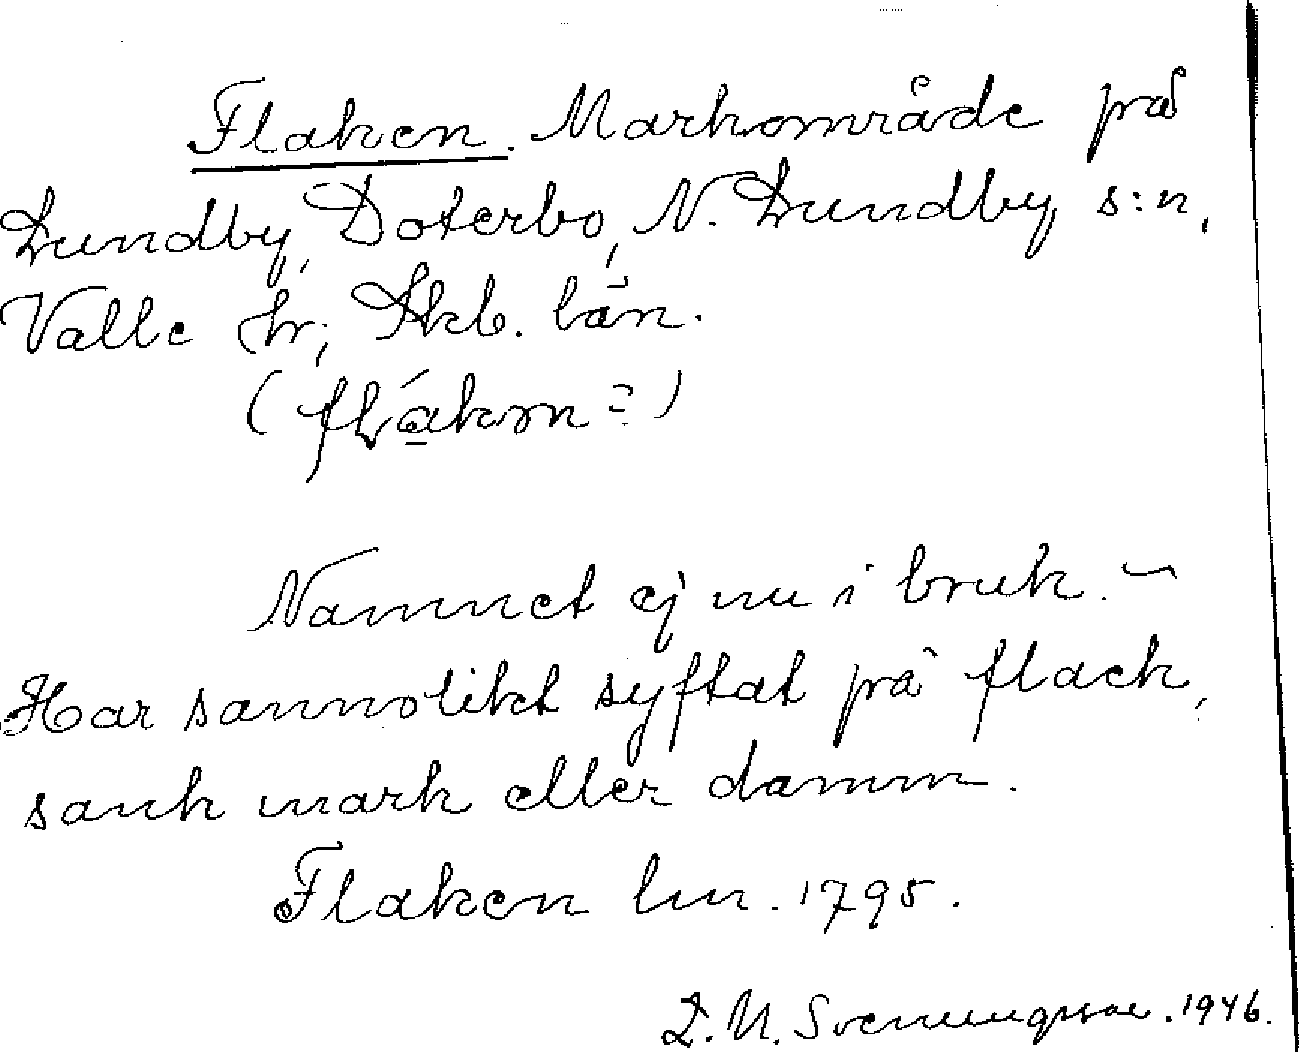 Flaken. Markområde på
Lundby, Doterbo, N. Lundby s:n,
Valle hr, Skb. län.
(flákon?)
Namnet ej nu i bruk. –
Har sannolikt syftat på flack,
sank mark eller damm.
Flaken lm. 1795.
L. M. Svenungsson. 1946.